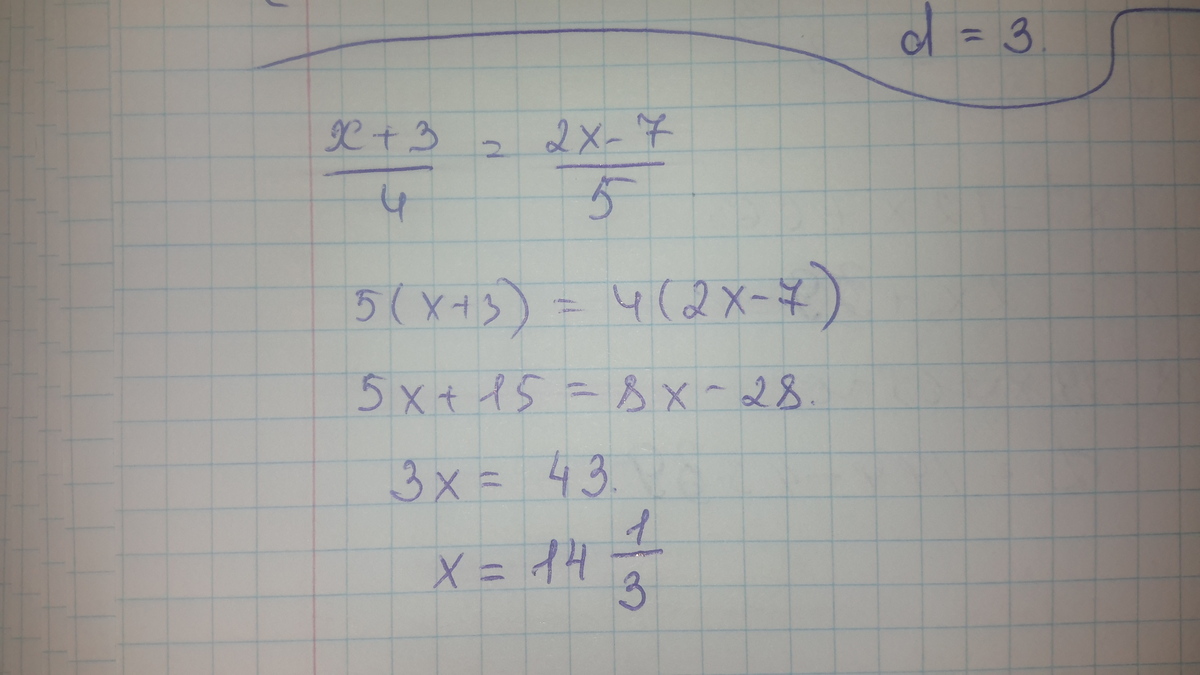 d = 3.
x + 3 / 4 = 2x - 7 / 5
5(x+3) = 4(2x-7)
5x + 15 = 8x - 28.
3x = 43.
x = 14 1/3